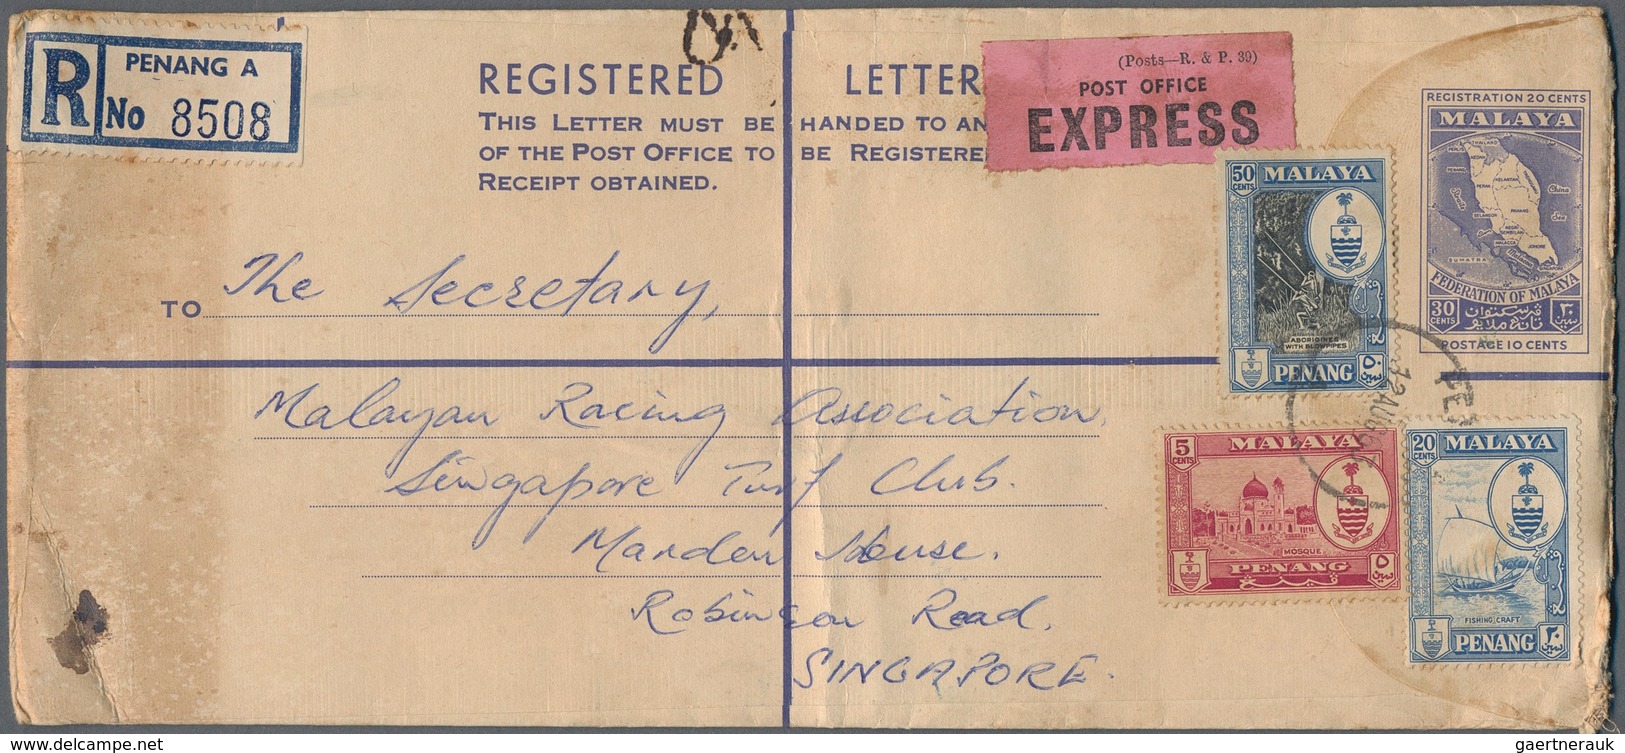 PENANG A
R No 8508
REGISTERED LETTER
THIS LETTER MUST BE HANDED TO AN
OF THE POST OFFICE TO BE REGISTERE
RECEIPT OBTAINED.
(Posts—R. & P. 39)
POST OFFICE
EXPRESS
REGISTRATION 20 CENTS
MALAYA
THAILAND
PERLIS
KEDAH
PENANG
KELANTAN
PERAK
PAHANG
SELANGOR
NEGRI
SEMBILAN
MALACCA
JOHORE
SINGAPORE
SUMATRA
China
Sea
FEDERATION OF MALAYA
30 CENTS
POSTAGE 10 CENTS
50 CENTS
MALAYA
ABORIGINES
WITH BLOWPIPES
PENANG
TO The Secretary,
Malayan Racing Association,
Singapore Turf Club.
House.
Robinson Road.
SINGAPORE.
5 CENTS
MALAYA
MOSQUE
PENANG
20 CENTS
MALAYA
FISHING CRAFT
PENANG
12 AU
gaertnerauk